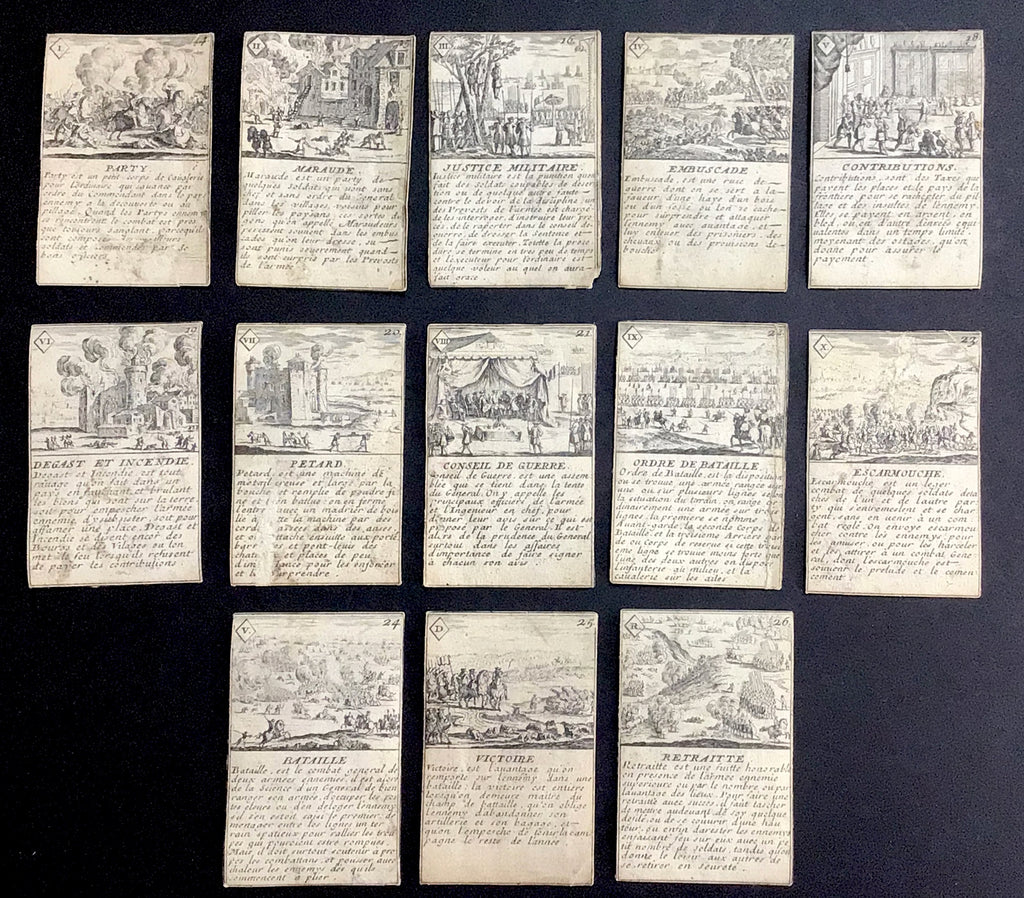 I 14
PARTY
Party est un petit corps de Cavalerie
pour l'ordinaire qui s'avance par
ordre du commandant dans le pays
ennemy a la découverte ou au
pillage. Quand les Partys ennemy
se rencontrent le combat est pres
que toujours sanglant, parcequ'il
sont composez des meilleurs
soldats et commendez par de
bons officiers
II
MARAUDE
Maraude est un party de
quelques soldats qui vont sans
ordre du General
dans les villages voisins pour
piller les paysans ces sortes de
gens qu'on appelle Maraudeurs
perissent souvent dans les embus
cades qu'on leur dresse, ou
sont punis severement quand
ils sont surpris par les Prevosts
de l'armée
III 16
JUSTICE MILITAIRE
Justice militaire est punition qu'on
fait des soldats coupables de deser
tion ou de quelque autre faute
contre le devoir de la discipline, un
des Prevosts de l'armée est chargé
de les interroger, d'instruire leur pro
cés, de le raporter dans le conseil de
guerre, d'y voir la Sentence et
de la faire executer. Toutte la proce
dure se termine en très peu de temps
et l'executeur pour l'ordinaire est
quelque voleur au quel on aura
fait grace
IV 17
EMBUSCADE
Embuscade, est une ruze de
guerre dont on se sert a la
faveur d'une haye d'un bois
ou d'un fossé où l'on se cache
pour surprendre et attaquer
l'ennemy avec avantage, et
luy enlever des prisonniers, des
chevaux ou des provisions de
bouche
V 18
CONTRIBUTIONS.
Contributions, sont des Taxes que
payent les places et le pays de la
frontiere pour se rachepter du pil
lage et des insultes de l'ennemy.
Elles se payent en argent, en
bled, ou en d'autres denrées equi
valentes dans un temps limité,
moyenant des ostages, qu'on
donne pour assurer le
payement.
VI 19
DEGAST ET INCENDIE.
Degast et Incendie, est tout
ravage qu'on fait dans un
pays en fauchant et brulant
les biens qui sont sur la terre,
soit pour empescher l'armée
ennemie, d'y subsister, soit pour
affamer une place. Degast et
Incendie se disent encor des
Bourgs et des Villages où l'on
met le feu lorsqu'ils refusent
de payer les contributions
VII 20
PETARD
Petard, est une machine de
metail creuse et large par la
bouche et remplie de poudre fi
ne et l'on bailue on en ferme
l'entrée avec un madrier de bois
lié a la machine par des
cordes a des anses
on l'attache ensuitte aux portes
et pont-levis des
chateaux et places de peu
d'importance pour les enfoncer
et les surprendre
VIII 21
CONSEIL DE GUERRE.
Conseil de Guerre, est une assem
blée qui se tient dans la tente
du General. On y appelle les
Principaux officiers de l'armée
et l'Ingenieur en chef, pour
donner leur avis sur ce qui est
proposé par le General. Il est
alors de la prudence du General
surtout dans les affaires
d'importance de faire signer
à chacun son avis
IX 22
ORDRE DE BATAILLE
Ordre de Bataille est la disposition
ou se trouve une armée rangée
sur une ou sur plusieurs lignes selon
la situation du lieu. on range or
dinairement une armée sur trois
lignes, la premiere se nomme
Avant-garde, la seconde Corps de
Bataille, et la troisieme Arriere gar
de ou Corps de reserve et cette trois
eme ligne se trouve moins forte que
une des deux autres on dispose
l'infanterie au milieu, et la
cavalerie sur les ailes
X 23
ESCARMOUCHE.
Escarmouche, est un leger
combat de quelques soldats deta
chez de l'une et de l'autre par
ty qui s'entremeslent et se char
gent sans en venir à un com
bat reglé. on envoye escarmou
cher contre les ennemys, pour
les amuser, ou pour les harceler
et les attirer à un combat gene
ral, dont l'escarmouche est
souvent le prelude et le comen
cement
V. 24
BATAILLE
Bataille, est le combat general de
deux armées ennemies, il est alors
de la science d'un General de bien
ranger son armée, d'occuper les pos
tes elevez ou d'en deloger l'ennemy
s'il s'en estoit saisi le premier, de
menager entre les lignes un ter
rain spatieux pour rallier les trou
pes qui pouroient estre rompues.
Mais il doit surtout soutenir a pro
pos les combattans, et pousser avec
chaleur les ennemys des qu'ils
commencent a plier.
D 25
VICTOIRE
Victoire, est l'avantage qu'on
remporte sur l'ennemy dans une
bataille, la victoire est entiere
lorsqu'on demeure maitre du
champ de bataille, qu'on oblige
l'ennemy d'abandonner son
artillerie et son bagage, et
qu'on l'empesche de tenir la cam
pagne le reste de l'année
R 26
RETRAITTE
Retraitte est une fuitte honorable
en presence de l'armée ennemie
superieure ou par le nombre ou par
l'avantage des lieux. Pour faire une
retraitte avec succés, il faut tascher
de mettre audevant de soy quelque
defilé, ou de se couvrir d'une hau
teur, ou enfin d'arester les ennemys
en faisant feu sur eux avec un pe
tit nombre de soldats, tandis qu'on
donne le loisir aux autres de
se retirer en seureté.